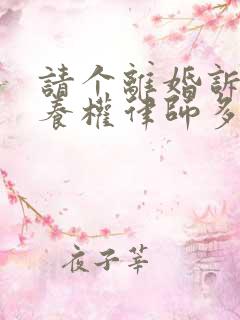 請个離婚訴
養權律師多
夜子莘